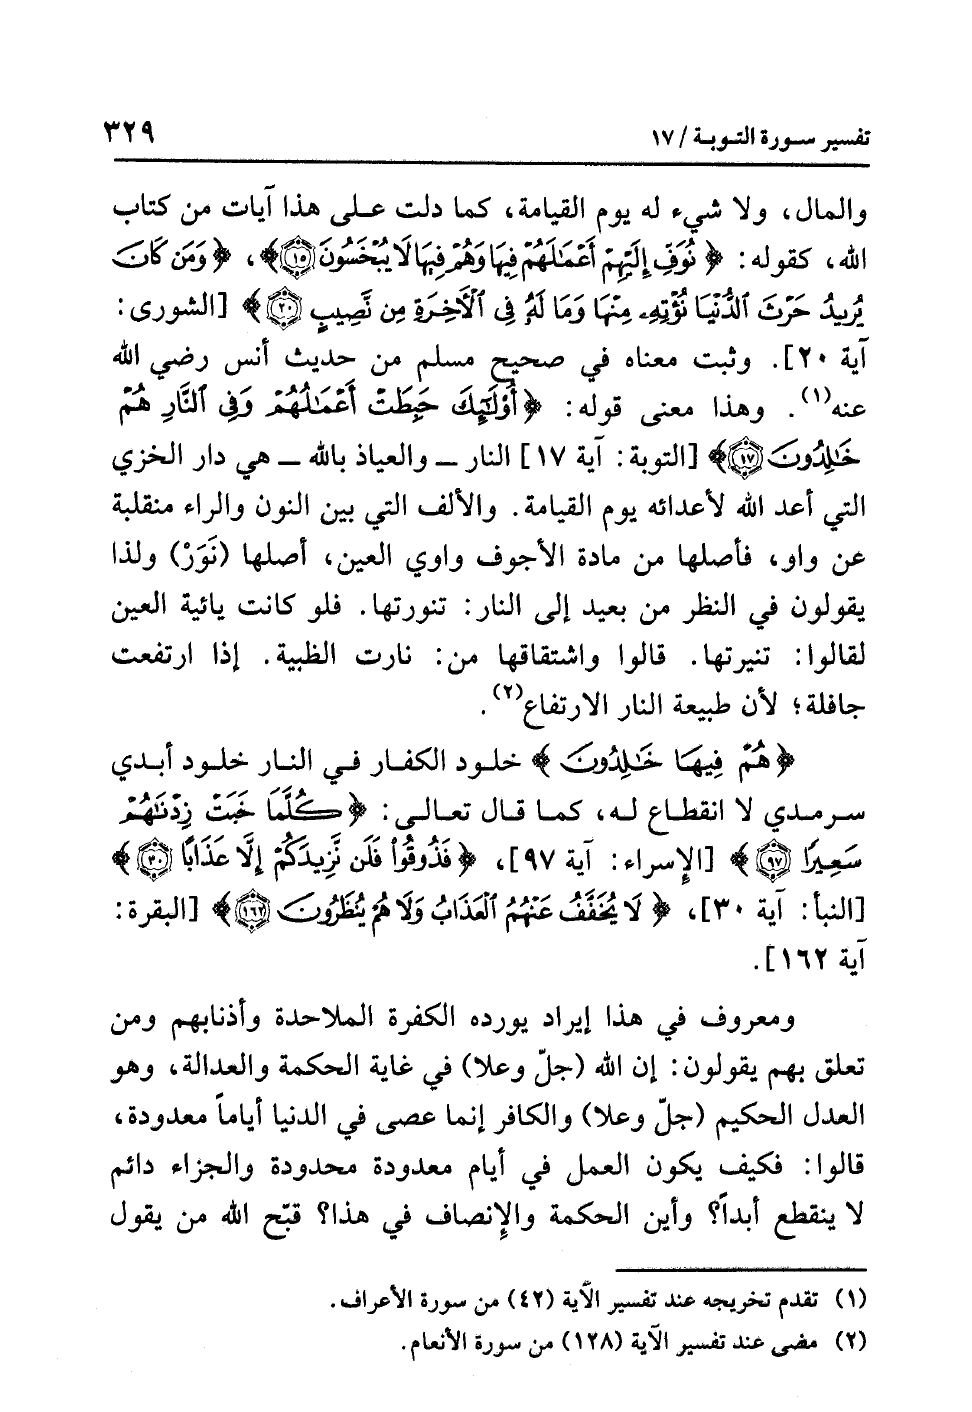 تفسير سورة التوبة / ١٧
٣٢٩
والمال، ولا شيء له يوم القيامة، كما دلت على هذا آيات من كتاب
الله، كقوله: ﴿نُوَفِّ إِلَيْهِمْ أَعْمَالَهُمْ فِيهَا وَهُمْ فِيهَا لَا يُبْخَسُونَ ۝١٥﴾، ﴿وَمَن كَانَ
يُرِيدُ حَرْثَ ٱلدُّنْيَا نُؤْتِهِۦ مِنْهَا وَمَا لَهُۥ فِى ٱلْأَخِرَةِ مِن نَّصِيبٍ ۝٢٠﴾ [الشورى:
آية ٢٠]. وثبت معناه في صحيح مسلم من حديث أنس رضي الله
عنه(١). وهذا معنى قوله: ﴿أُوْلَٰٓئِكَ حَبِطَتْ أَعْمَٰلُهُمْ وَفِى ٱلنَّارِ هُمْ
خَٰلِدُونَ ۝١٧﴾ [التوبة: آية ١٧] النار ــ والعياذ بالله ــ هي دار الخزي
التي أعد الله لأعدائه يوم القيامة. والألف التي بين النون والراء منقلبة
عن واو، فأصلها من مادة الأجوف واوي العين، أصلها (نَوَرْ) ولذا
يقولون في النظر من بعيد إلى النار: تنورتها. فلو كانت يائية العين
لقالوا: تنيرتها. قالوا واشتقاقها من: نارت الظبية. إذا ارتفعت
جافلة؛ لأن طبيعة النار الارتفاع(٢).
﴿هُمْ فِيهَا خَٰلِدُونَ﴾ خلود الكفار في النار خلود أبدي
سرمدي لا انقطاع له، كما قال تعالى: ﴿كُلَّمَا خَبَتْ زِدْنَٰهُمْ
سَعِيرًا ۝٩٧﴾ [الإسراء: آية ٩٧]، ﴿فَذُوقُواْ فَلَن نَّزِيدَكُمْ إِلَّا عَذَابًا ۝٣٠﴾
[النبأ: آية ٣٠]، ﴿لَا يُخَفَّفُ عَنْهُمُ ٱلْعَذَابُ وَلَا هُمْ يُنظَرُونَ ۝١٦٢﴾ [البقرة:
آية ١٦٢].
ومعروف في هذا إيراد يورده الكفرة الملاحدة وأذنابهم ومن
تعلق بهم يقولون: إن الله (جلّ وعلا) في غاية الحكمة والعدالة، وهو
العدل الحكيم (جلّ وعلا) والكافر إنما عصى في الدنيا أياماً معدودة،
قالوا: فكيف يكون العمل في أيام معدودة محدودة والجزاء دائم
لا ينقطع أبداً؟ وأين الحكمة والإنصاف في هذا؟ قبّح الله من يقول
(١) تقدم تخريجه عند تفسير الآية (٤٢) من سورة الأعراف.
(٢) مضى عند تفسير الآية (١٢٨) من سورة الأنعام.